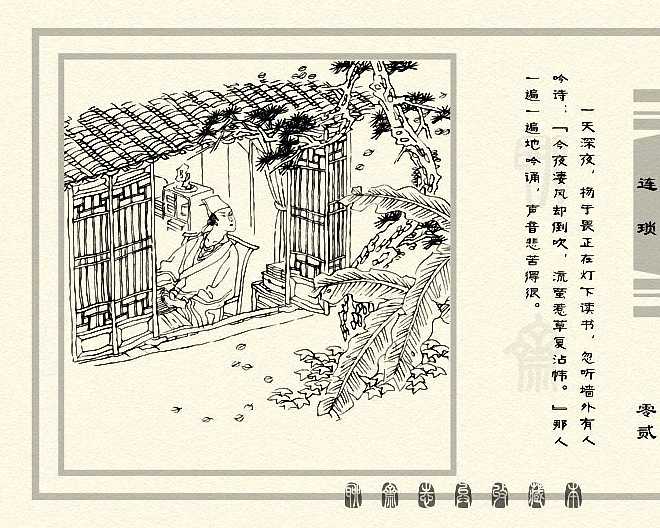 连琐
零贰
一天深夜，杨于畏正在灯下读书，忽听墙外有人
吟诗：『今夜凄风却倒吹，流萤惹草复沾帏。』那人
一遍一遍地吟诵，声音悲苦得很。
聊齋志異收藏本